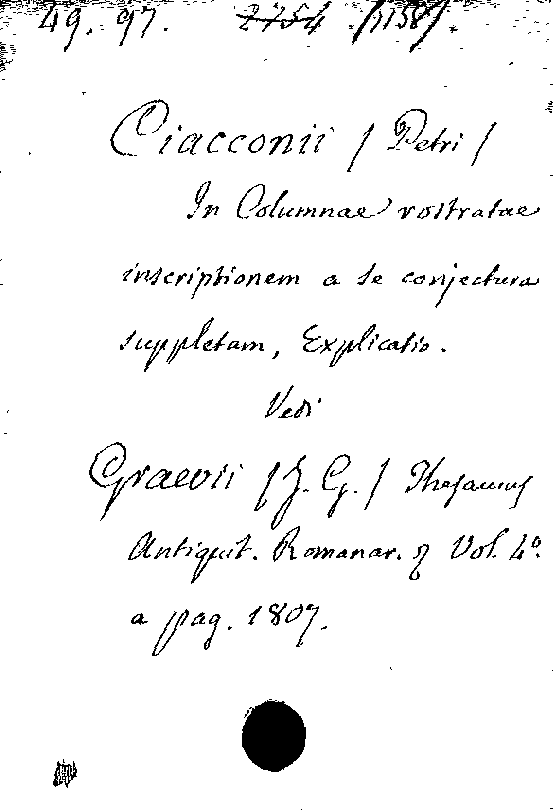 49. 97. 2754 /1158/.
Ciacconii / Petri /
In Columnae rostratae
inscriptionem a se conjectura
suppletam, Explicatio.
Vedi
Graevii / J. G. / Thesaurus
Antiquit. Romanar. Vol. 4º.
a pag. 1807.